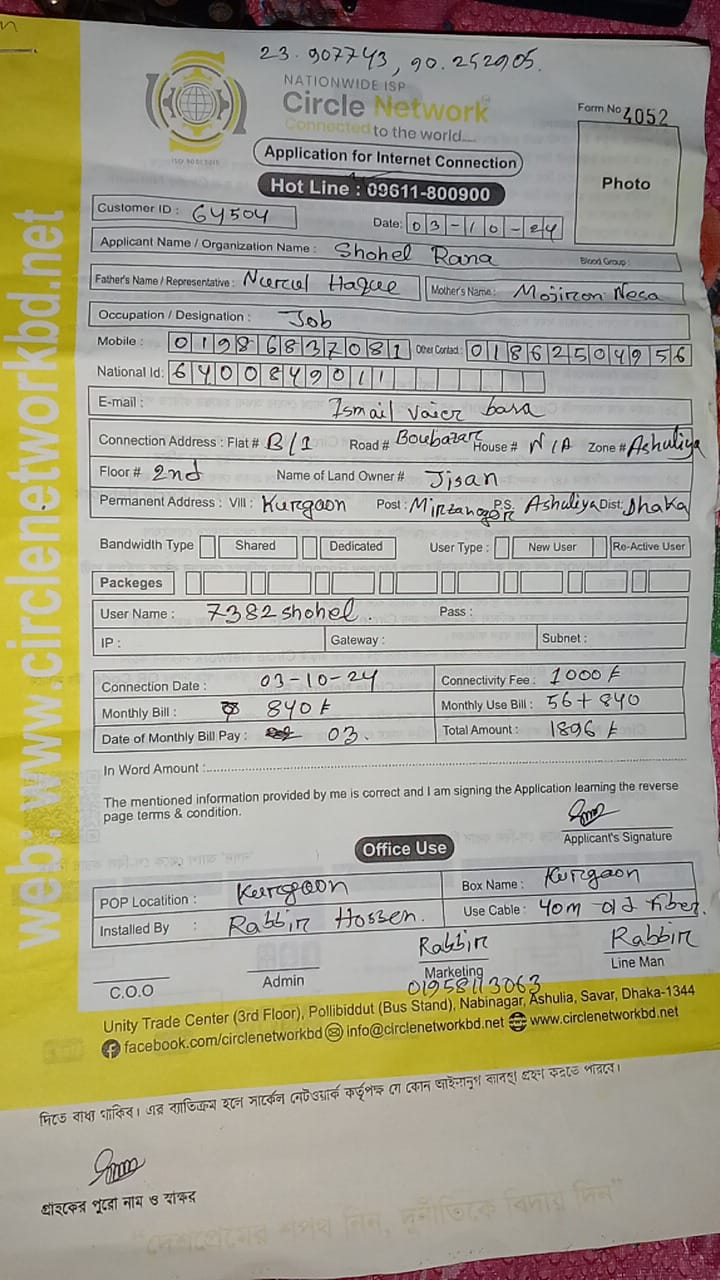 23.907743, 90.252905.
NATIONWIDE ISP
Circle Network
Connected to the world....
ISO 9001:2015
Form No 4052
Application for Internet Connection
Photo
Hot Line : 09611-800900
Customer ID : 64504
Date: 03-10-24
Applicant Name / Organization Name : Shohel Rana
Blood Group :
Father's Name / Representative : Nurul Haque Mother's Name : Mojiron Nesa
Occupation / Designation : Job
Mobile : 01986837081 Other Contact : 01862504956
National Id: 6400849011
E-mail : Ismail vaier basa
Connection Address : Flat # B/1 Road # Boubazar House # N/A Zone # Ashuliya
Floor # 2nd Name of Land Owner # Jisan
Permanent Address : Vill : Kurgaon Post : Mirzanagor P.S. Ashuliya Dist: Dhaka
Bandwidth Type Shared Dedicated User Type : New User Re-Active User
Packeges
User Name : 7382shohel. Pass :
IP : Gateway : Subnet :
Connection Date : 03-10-24 Connectivity Fee : 1000 ৳
Monthly Bill : 840 ৳ Monthly Use Bill : 56 + 840
Date of Monthly Bill Pay : 03. Total Amount : 1896 ৳
In Word Amount :
The mentioned information provided by me is correct and I am signing the Application learning the reverse
page terms & condition.
Applicant's Signature
Office Use
POP Locatition : Kurgaon Box Name : Kurgaon
Installed By : Rabbir Hossen. Use Cable : 40m
Rabbir Rabbir
C.O.O Admin Marketing Line Man
01958113063
Unity Trade Center (3rd Floor), Pollibiddut (Bus Stand), Nabinagar, Ashulia, Savar, Dhaka-1344
facebook.com/circlenetworkbd info@circlenetworkbd.net www.circlenetworkbd.net
web: www.circlenetworkbd.net
দিতে বাধ্য থাকিব। এর ব্যতিক্রম হলে সার্কেল নেটওয়ার্ক কর্তৃপক্ষ যে কোন আইনানুগ ব্যবস্থা গ্রহণ করতে পারবে।
গ্রাহকের পুরো নাম ও স্বাক্ষর
“দেশপ্রেমের শপথ নিন, দুর্নীতিকে বিদায় দিন”